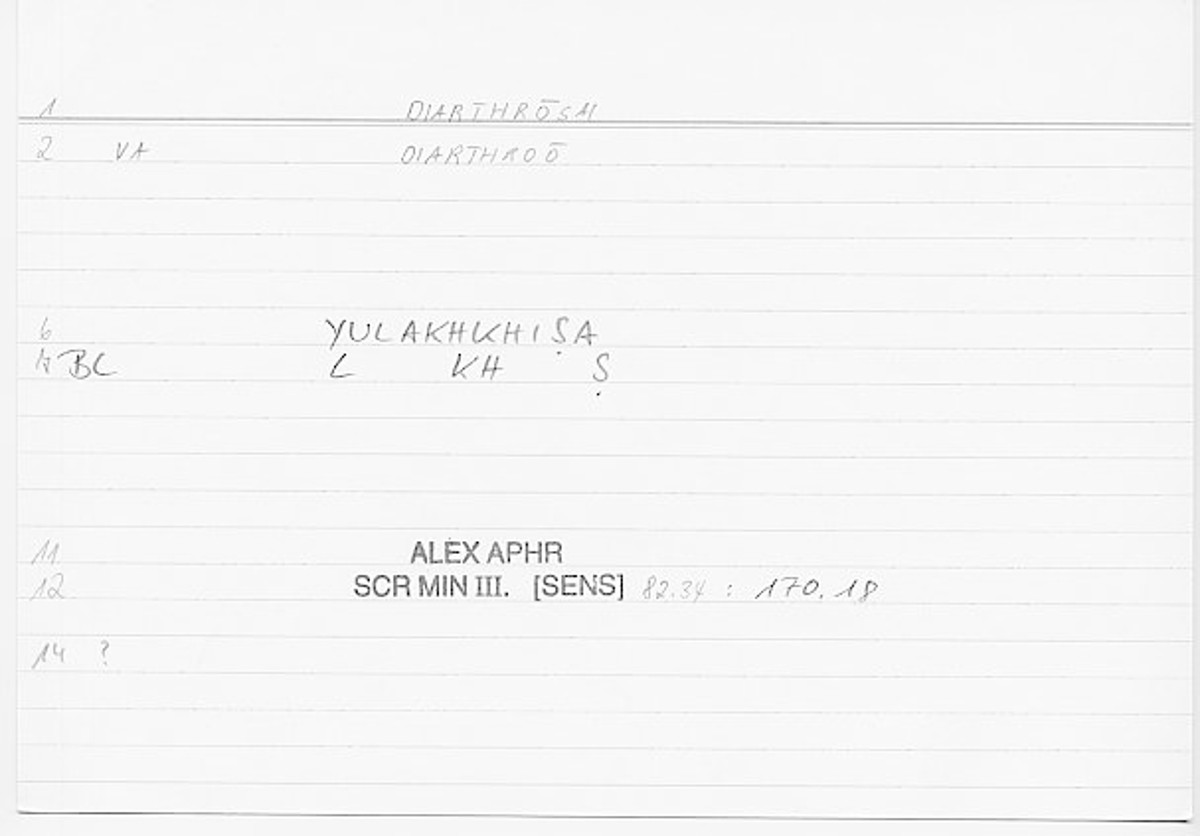 1 DIARTHRŌSAI
2 VA DIARTHROŌ
6 YULAKHKHIṢA
7 BC L KH Ṣ
11 ALEX APHR
12 SCR MIN III. [SENS] 82.34 : 170.18
14 ?